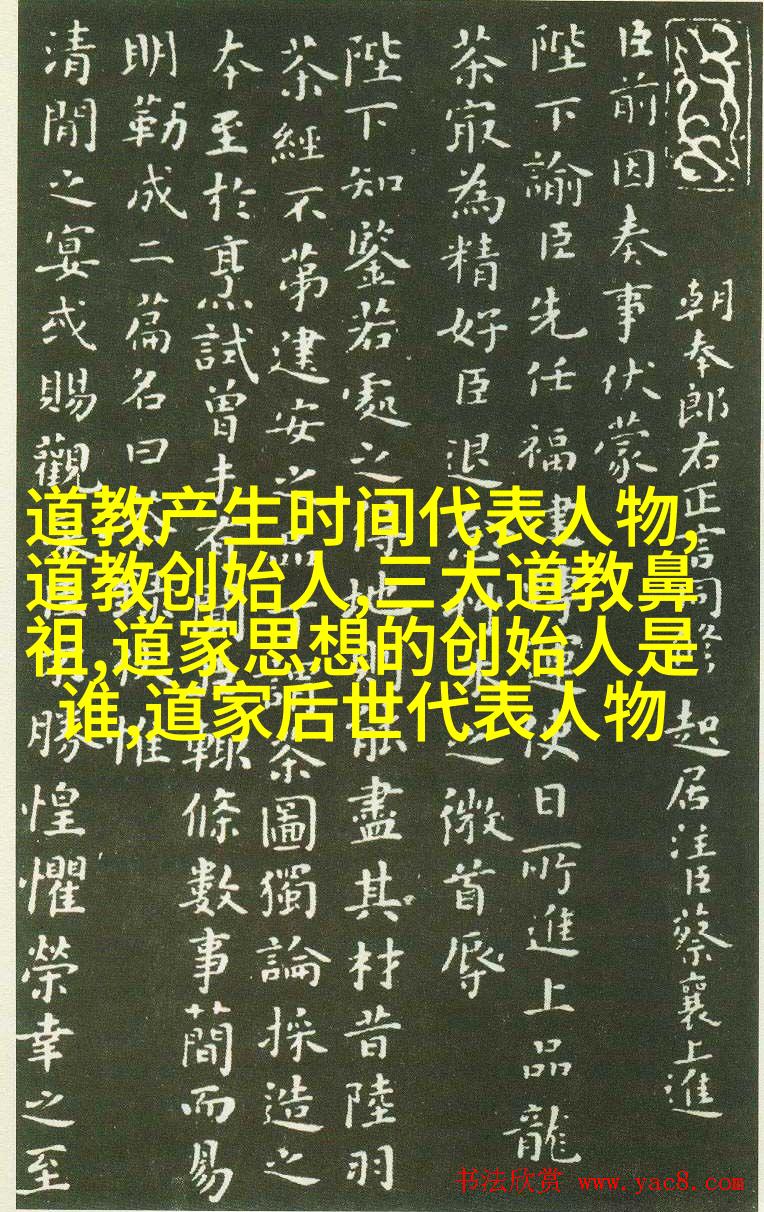 朝奉郎右正言同修起居注臣蔡襄上進
臣前因奏事伏蒙
陛下諭臣先任福建運使日所進上品龍
茶㝡為精好臣退之微首辱
陛下知鑒若處之得地則能盡其材昔陸羽
茶經不第建安之品茶圖獨論採造之
本至於烹試曾未有輒條數事簡而易
明勒成二篇名曰惟
清閒之宴或賜觀勝惶懼榮幸之至
道教产生时间代表人物,
道教创始人,三大道教鼻
祖,道家思想的创始人是
谁,道家后世代表人物
书法欣赏 www.yac8.com